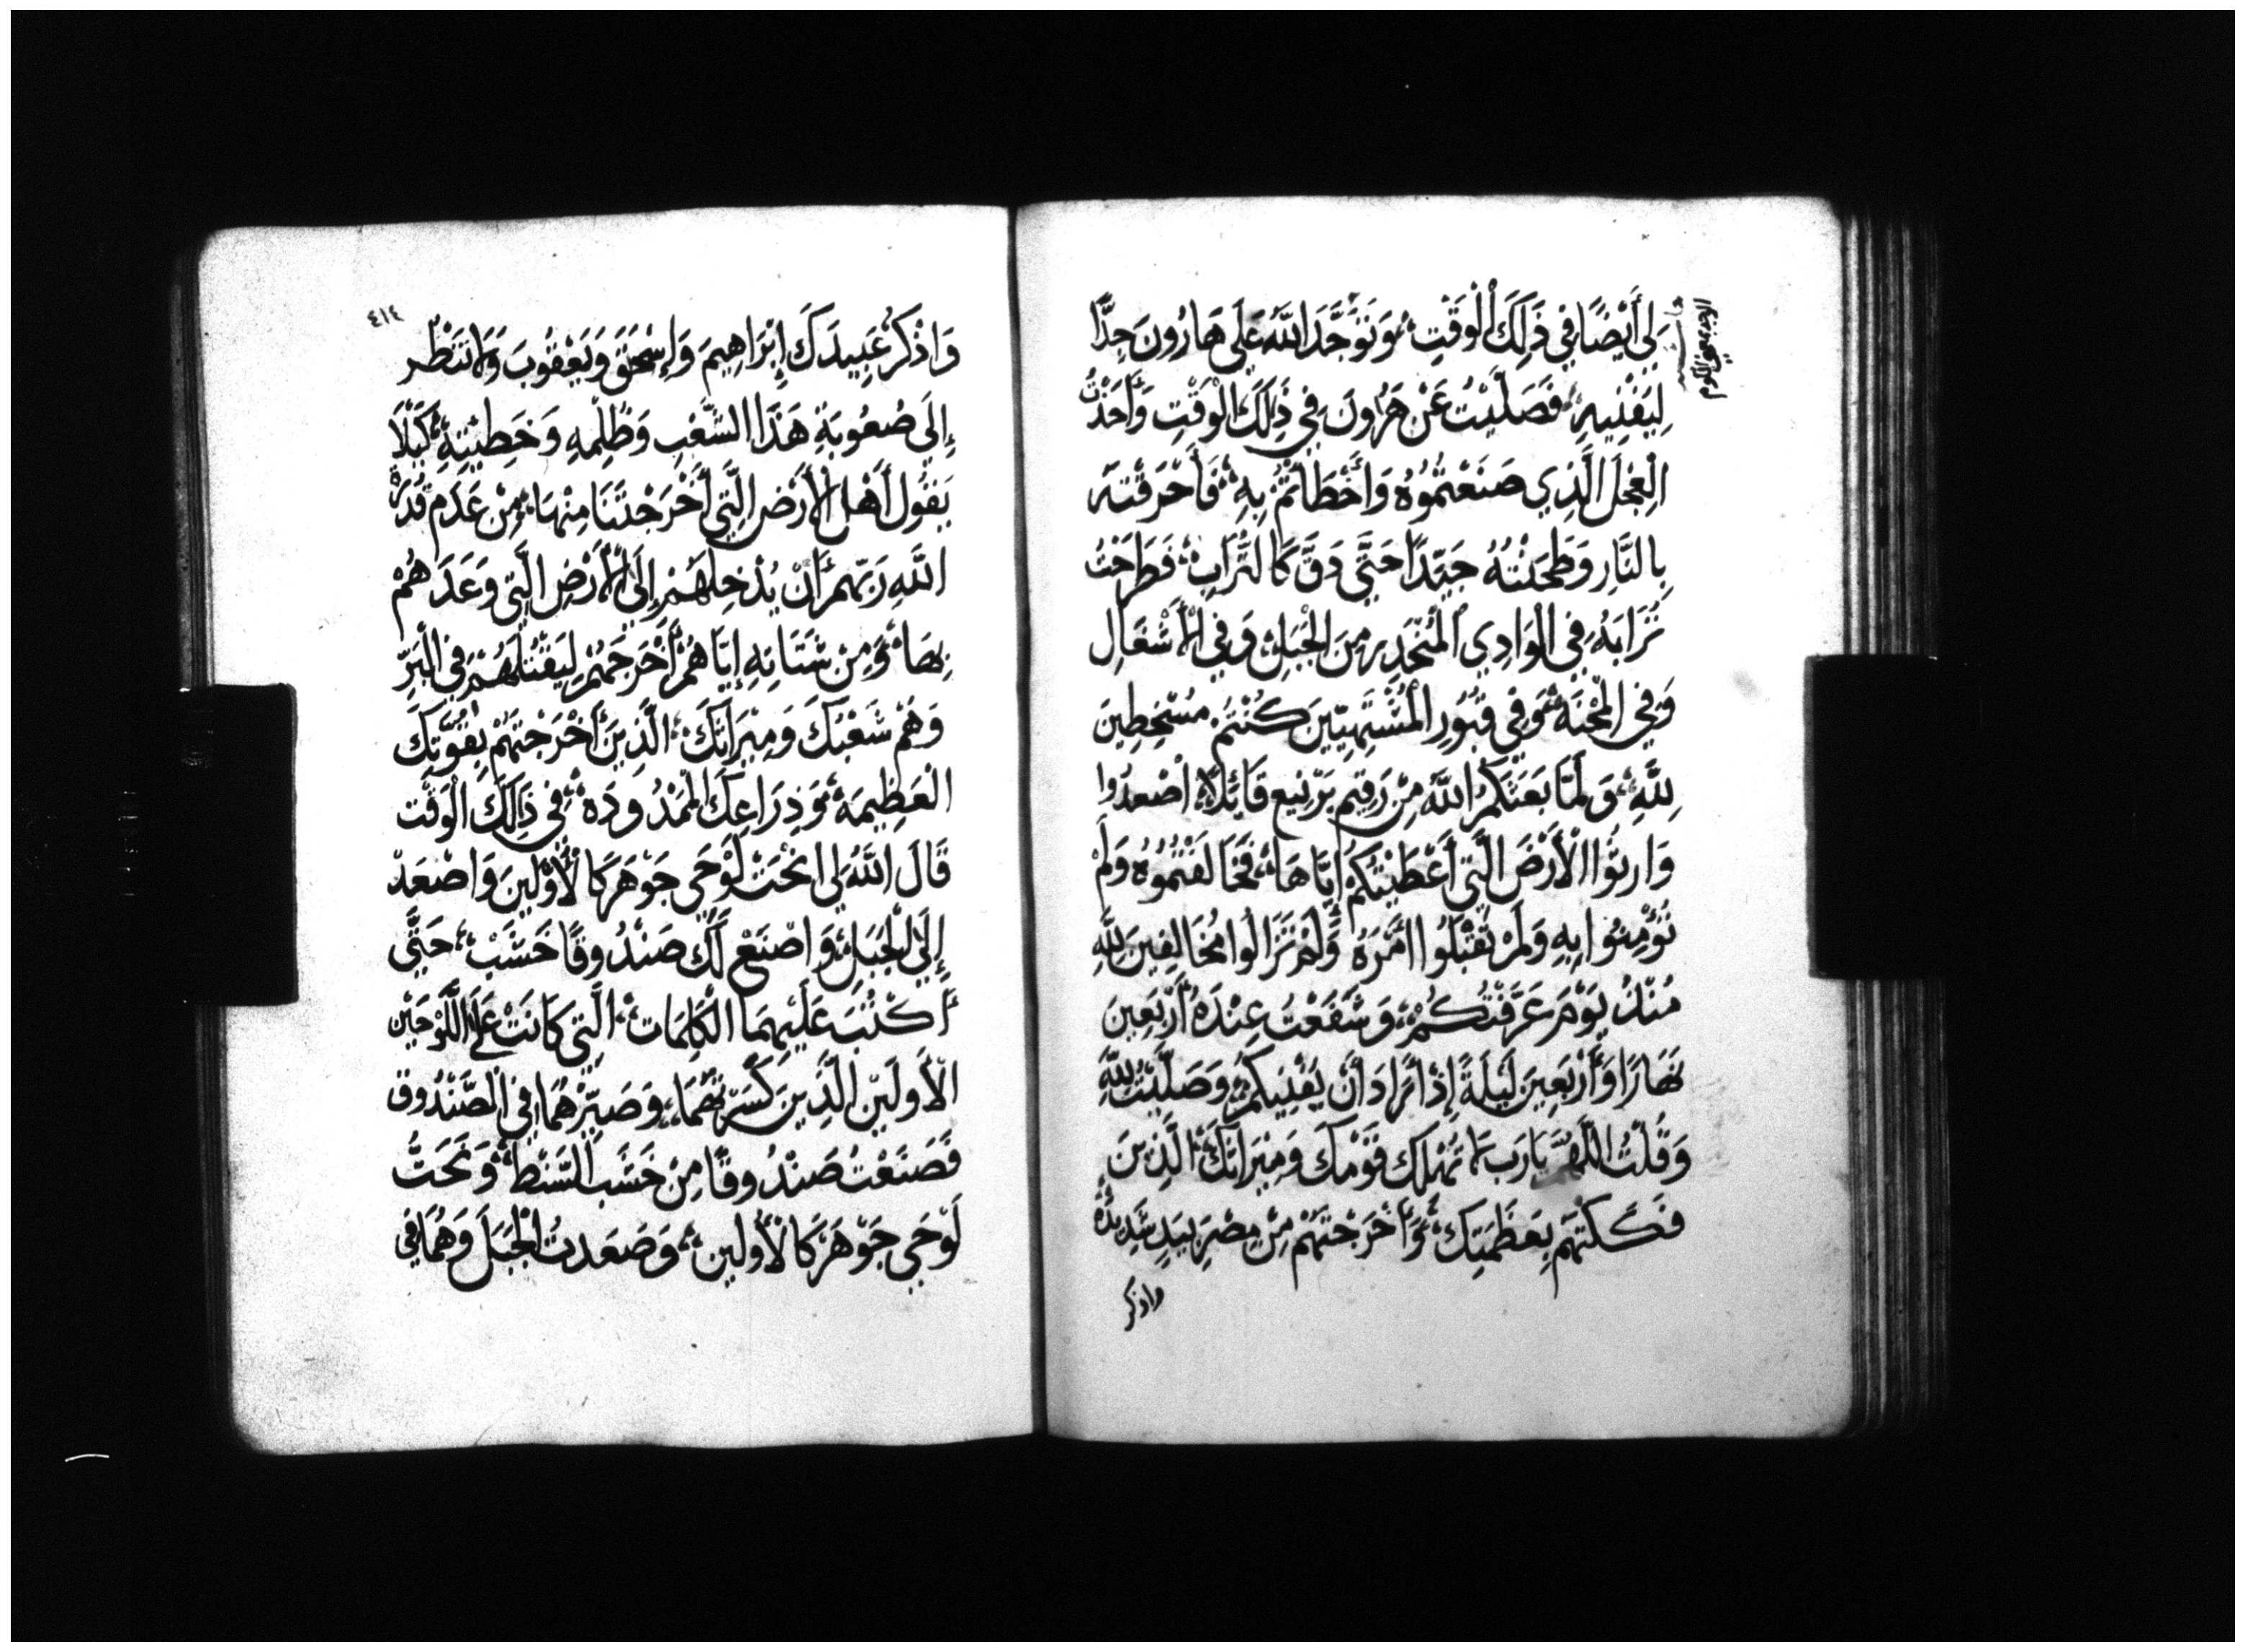 لِي أَيْضًا فِي ذَلِكَ الْوَقْتِ، وَتَوَجَّدَ اللَّهُ عَلَى هَارُونَ جِدًّا
لِيُفْنِيهِ، فَصَلَّيْتُ عَنْ هَرُونَ فِي ذَلِكَ الْوَقْتِ وَأَخَذْتُ
الْعِجْلَ الَّذِي صَنَعْتُمُوهُ وَأَخْطَأْتُمْ بِهِ، فَأَحْرَقْتُهُ
بِالنَّارِ وَطَحَنْتُهُ جَيِّدًا حَتَّى دَقَّ كَالتُّرَابِ، فَطَرَحْتُ
تُرَابَهُ فِي الْوَادِي الْمُنْحَدِرِ مِنَ الْجَبَلِ، وَفِي الْأَشْعَالِ
وَفِي الْمِحْنَةِ، وَفِي قُبُورِ الْمُشْتَهِيِّينَ كُنْتُمْ مُسْخِطِينَ
لِلَّهِ، وَلَمَّا بَعَثَكُمُ اللَّهُ مِنْ رَقِيمِ بَرْنِيعَ قَائِلًا، اصْعَدُوا
وَارِثُوا الْأَرْضَ الَّتِي أَعْطَيْتُكُمْ إِيَّاهَا، فَخَالَفْتُمُوهُ وَلَمْ
تُؤْمِنُوا بِهِ وَلَمْ تَقْبَلُوا أَمْرَهُ وَلَمْ تَزَالُوا مُخَالِفِينَ لِلَّهِ
مُنْذُ يَوْمَ عَرَفْتُكُمْ، وَشَفَعْتُ عِنْدَهُ أَرْبَعِينَ
نَهَارًا وَأَرْبَعِينَ لَيْلَةً إِذْ أَرَادَ أَنْ يُفْنِيكُمْ وَصَلَّيْتُ لِلَّهِ
وَقُلْتُ اللَّهُمَّ يَا رَبِّ لَا تُهْلِك قَوْمَكَ وَمِيرَاثَكَ، الَّذِينَ
فَكَكْتَهُمْ بِعَظَمَتِكَ، وَأَخْرَجْتَهُمْ مِنْ مِصْرَ بِيَدٍ شَدِيدَةٍ
واذكر
٤١٤
وَاذْكُرْ عَبِيدَكَ إِبْرَاهِيمَ وَإِسْحَقَ وَيَعْقُوبَ وَلَا تَنْظُرْ
إِلَى صُعُوبَةِ هَذَا الشَّعْبِ وَظُلْمِهِ وَخَطِيئَتِهِ، كَيْلَا
يَقُول أَهْلُ الْأَرْضِ الَّتِي أَخْرَجْتَنَا مِنْهَا، مِنْ عَدَمِ قُدْرَةِ
اللَّهِ رَبِّهِمْ أَنْ يُدْخِلَهُمْ إِلَى الْأَرْضِ الَّتِي وَعَدَهُمْ
بِهَا، وَمِنْ شَنَانِهِ إِيَّاهُمْ أَخْرَجَهُمْ لِيَقْتُلَهُمْ فِي الْبَرِّ
وَهُمْ شَعْبُكَ وَمِيرَاثُكَ، الَّذِينَ أَخْرَجْتَهُمْ بِقُوَّتِكَ
الْعَظِيمَةِ، وَذِرَاعِكَ الْمَمْدُودَه، فِي ذَلِكَ الْوَقْت
قَالَ اللَّهُ لِي انْحَتْ لَوْحَي جَوْهَر كَالْأَوَّلِينَ وَاصْعَدْ
إِلَيَّ الْجَبَلِ، وَاصْنَعْ لَكَ صَنْدُوقًا خَشَبْ، حَتَّى
أَكْتُبَ عَلَيْهِمَا الْكَلِمَات، الَّتِي كَانَتْ عَلَى اللَّوْحَيْنِ
الْأَوَّلَيْنِ الَّذِينَ كَسَّرْتَهُمَا، وَصَيِّرْهُمَا فِي الصَّنْدُوق
فَصَنَعْتُ صَنْدُوقًا مِنْ خَشَبِ السَّنْطِ، وَنَحَتُّ
لَوْحَي جَوْهَر كَالْأَوَّلِين، وَصَعَدتُ الْجَبَلَ وَهُمَا فِي